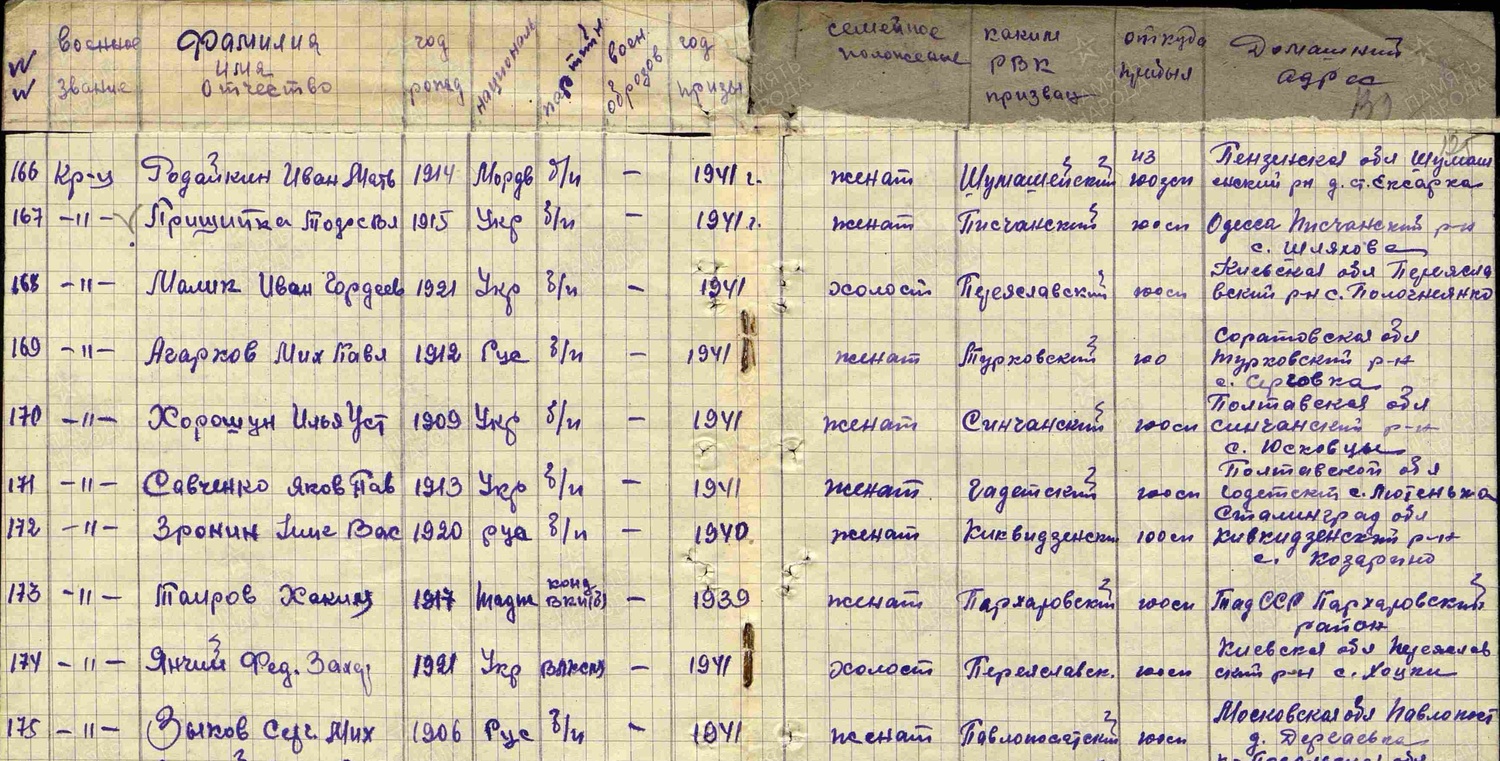 №№ Военное Звание Фамилия имя Отчество год рожд националь партийн воен образов год призы семейное положение каким РВК призван откуда прибыл Домашний адрес
166 Кр-ц Родайкин Иван Мать 1914 Мордв б/п — 1941 г. женат Шумашейский из 1юзсп Пензинская обл Шумаш
енский рн д. ст. Ексарка
167 —11— Пришитка Тодосья 1915 Укр б/п — 1941 г. женат Писчанский Одесса Писчанский р-н
с. Шляхова
168 —11— Малик Иван Гордеев 1921 Укр б/п — 1941 холост Переяславский Киевская обл Переясла
вский р-н с.
169 —11— Агарков Мих Павл 1912 Рус б/п — 1941 женат Турковский Соратовская обл
турковский р-н
с.
170 —11— Хорошун Илья Уст 1909 Укр б/п — 1941 женат Синчанский Полтавская обл
синчанский р-н
с. Юсковцы
171 —11— Савченко Яков Пав 1913 Укр б/п — 1941 женат Гадетский Полтавской обл
годетский с. Лютенька
172 —11— Зронин Вас 1920 рус б/п — 1940 женат Киквидзенский Сталинград обл
Киквидзенский р-н
с. Козарино
173 —11— Таиров Хаким 1917 тадж конд ВКП(б) — 1939 женат Пархаровский Тад ССР Пархаровский
район
174 —11— Янчий Фед. Захар 1921 Укр ВЛКСМ — 1941 холост Переяславск. Киевская обл Переяслов
ский р-н с. Хоцки
175 —11— Зыков Серг. Мих 1906 Рус б/п — 1941 женат Павлопосадский Московская обл Павлопост
д.